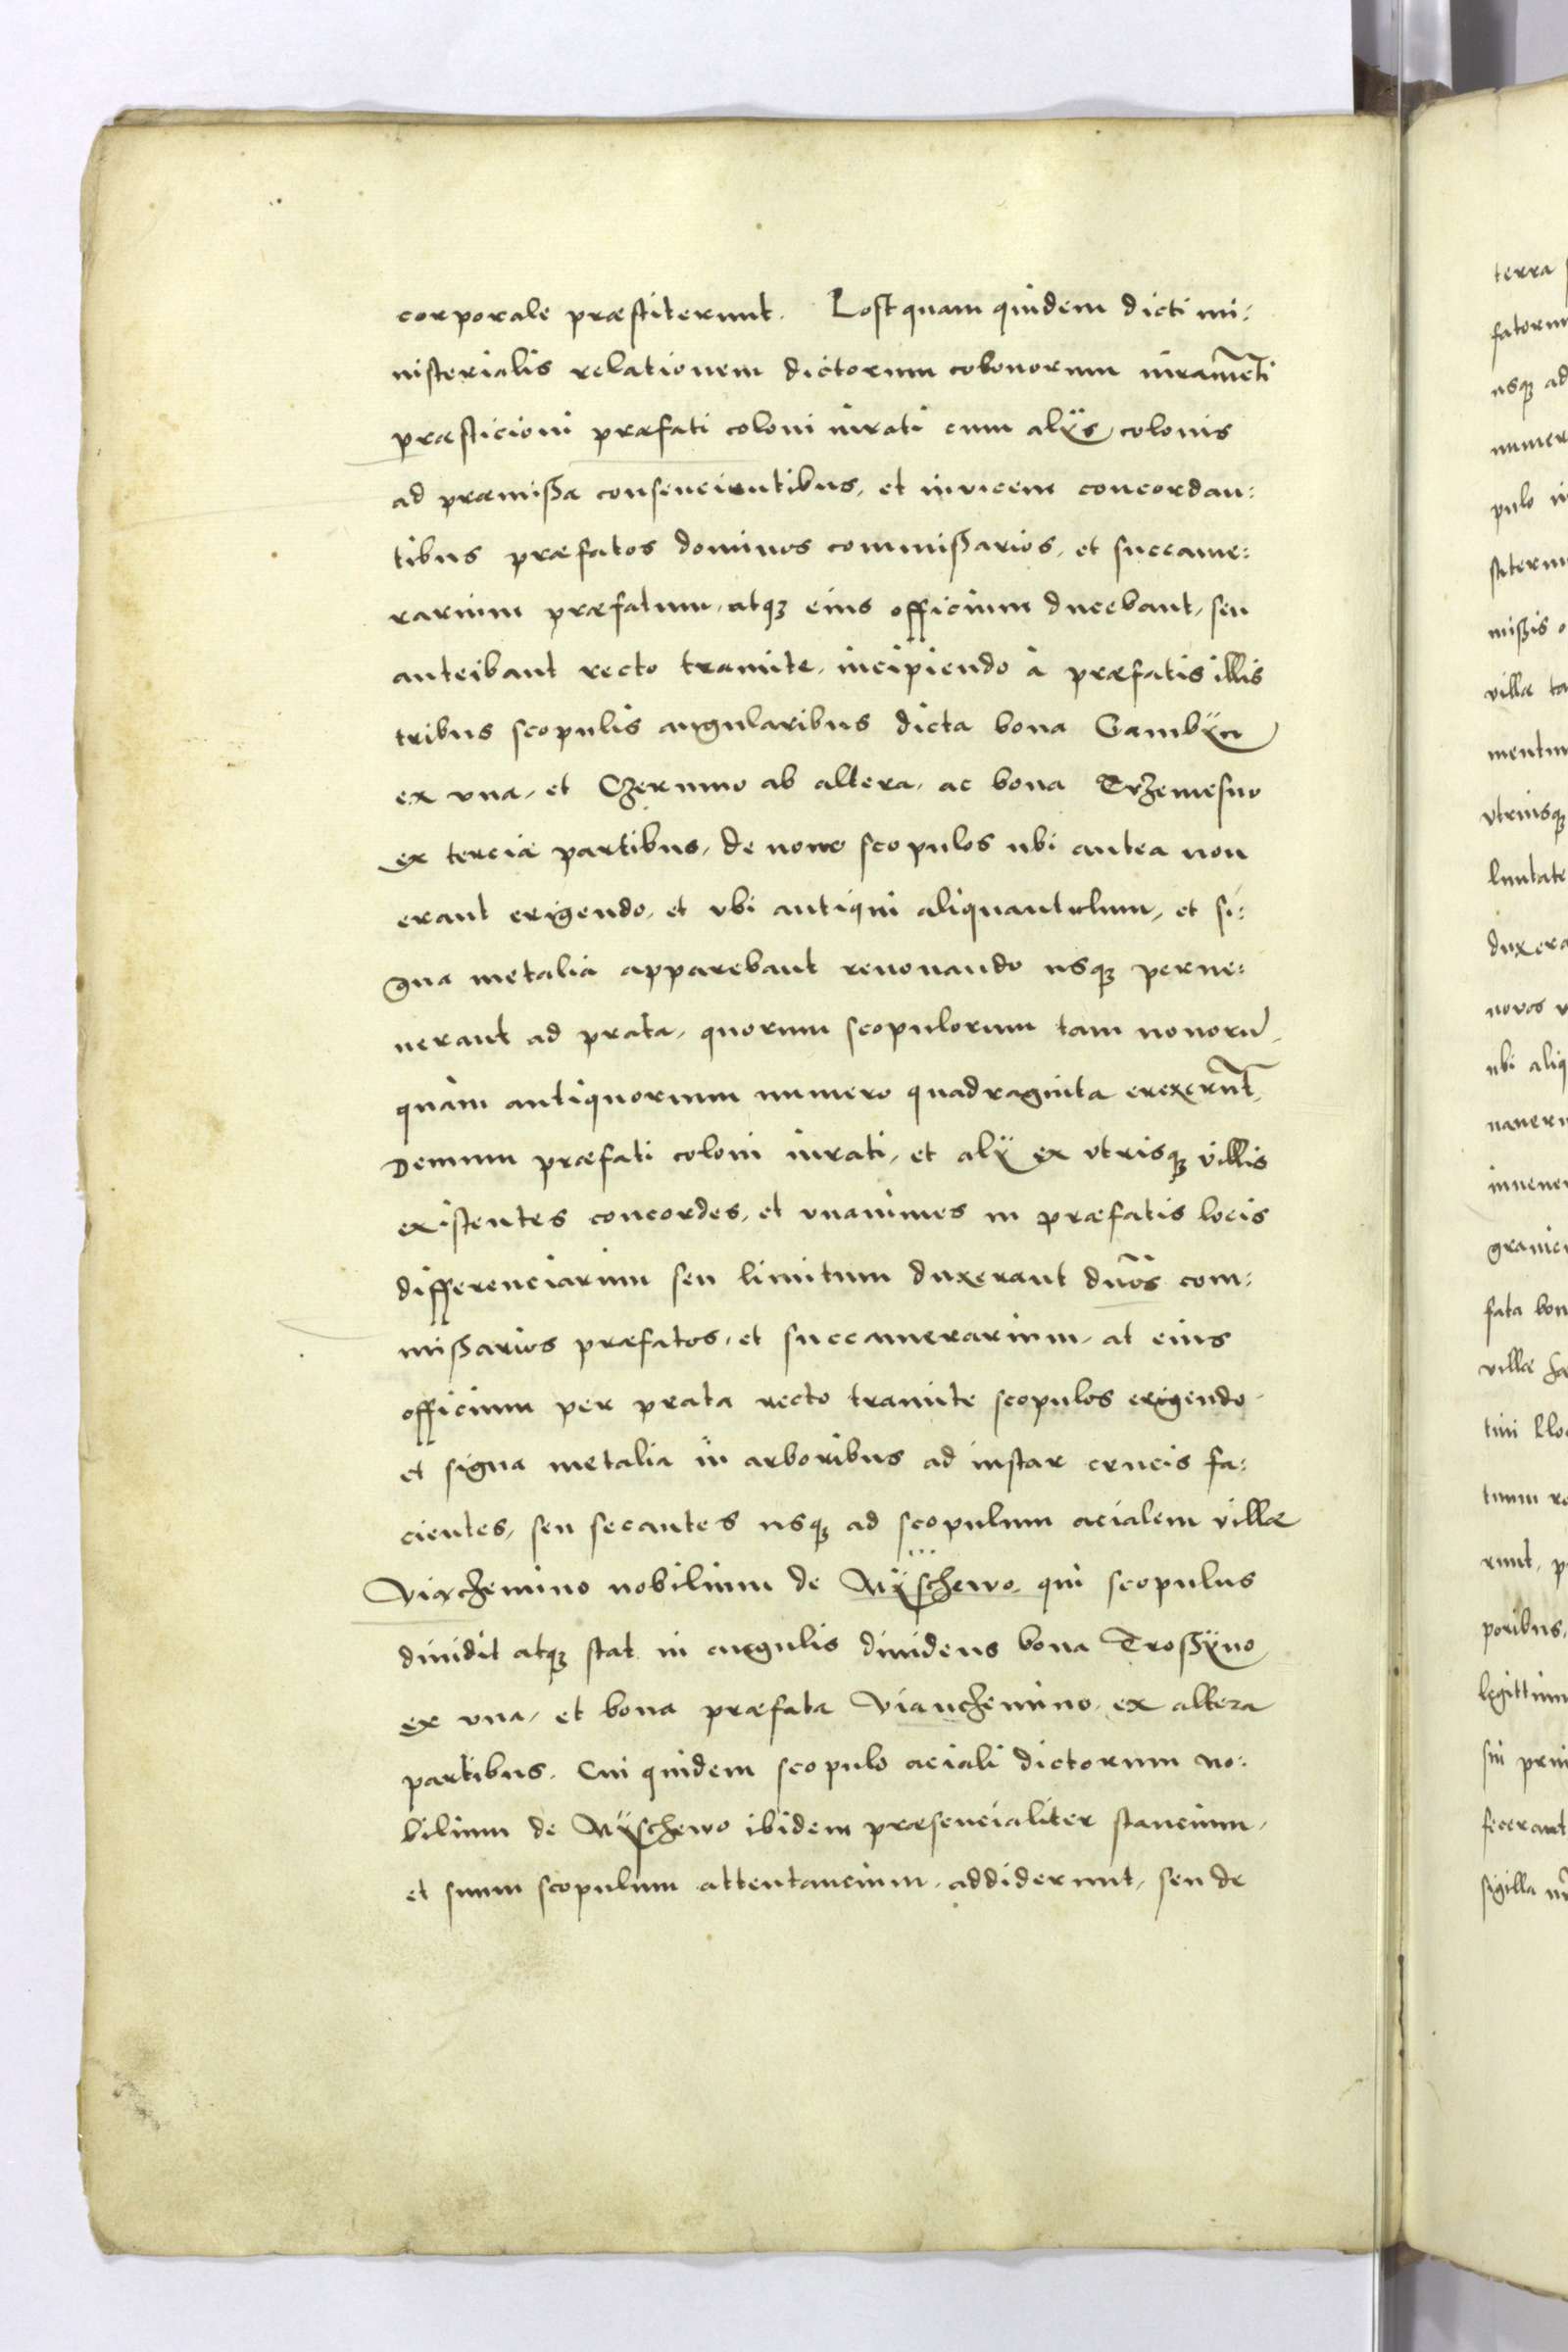 corporale præstiterunt. Postquam quidem dicti mi:
nisterialis relationem dictorum colonorum iuramēti
præsticioni præfati coloni iurati cum alÿs colonis
ad præmißa consencientibus, et inuicem concordan:
tibus præfatos dominos commißarios, et succame:
rarium præfatum, atqꝫ eius officium ducebant, seu
anteibant recto tramite, incipiendo à præfatis illis
tribus scopulis angularibus dicta bona Gambÿn
ex vna, et Czerunno ab altera, ac bona Trzemesno
ex tercia partibus, de nouo scopulos ubi antea non
erant erigendo, et vbi antiqui aliquantulum, et si:
gna metalia apparebant renouando usqꝫ perue:
nerant ad prata, quorum scopulorum tam nouorū,
quàm antiquorum numero quadraginta erexerūt,
Demum præfati coloni iurati, et alÿ ex vtrisqꝫ villis
existentes concordes, et vnanimes in præfatis locis
differenciarum seu limitum duxerant dños com:
mißarios præfatos, et succamerarium, at eius
officium per prata recto tramite scopulos erigendo
et signa metalia in arboribus ad instar crucis fa:
cientes, seu secantes usqꝫ ad scopulum acialem villæ
nobilium de Mÿschewo, qui scopulus
diuidit atqꝫ stat in angulis diuidens bona Troßÿno
ex vna, et bona præfata Vianczemino, ex altera
partibus. Cui quidem scopulo aciali dictorum no:
bilium de Mÿschewo ibidem præsencialiter stancium,
et suum scopulum attentancium, addiderunt, seu de
terra
fatorum
usqꝫ ad
numer
pulo
stiterun
mißis
villæ ta
mentum
vtriusqꝫ
luntate
duxera
novos
ubi aliq
inuene
fata bon
villæ
poribus,
legittim
fecerant
sigilla